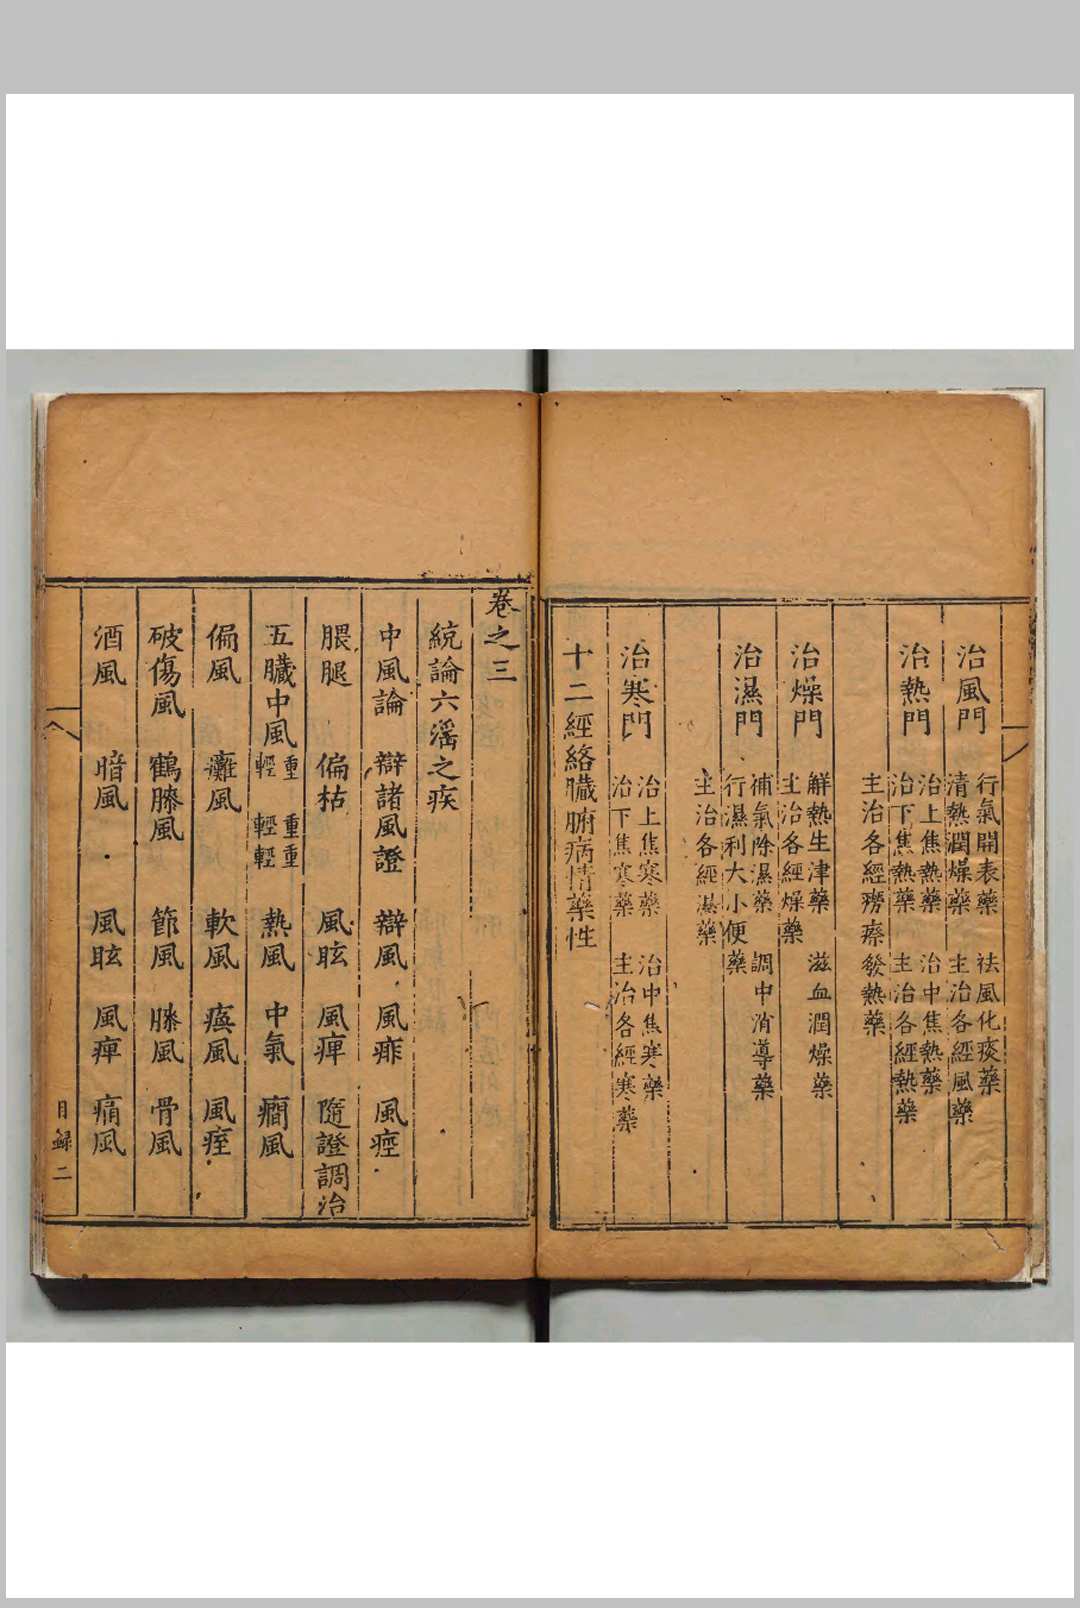 治風門
行氣開表藥 祛風化痰藥
清熱潤燥藥 主治各經風藥
治熱門
治上焦熱藥 治中焦熱藥
治下焦熱藥 主治各經熱藥
主治各經癆瘵發熱藥
治燥門
解熱生津藥 滋血潤燥藥
主治各經燥藥
治濕門
補氣除濕藥 調中消導藥
行濕利大小便藥
主治各經濕藥
治寒門
治上焦寒藥 治中焦寒藥
治下焦寒藥 主治各經寒藥
十二經絡臟腑病情藥性
卷之三
統論六滛之疾
中風論 辯諸風證 辯風 風痱 風痙
腲腿 偏枯 風眩 風痺 隨證調治
五臟中風 重輕 重輕重輕 熱風 中氣 癇風
偏風 癱風 軟風 風痓
破傷風 鶴膝風 節風 膝風 骨風
酒風 暗風 風眩 風痺 痛風
目録二